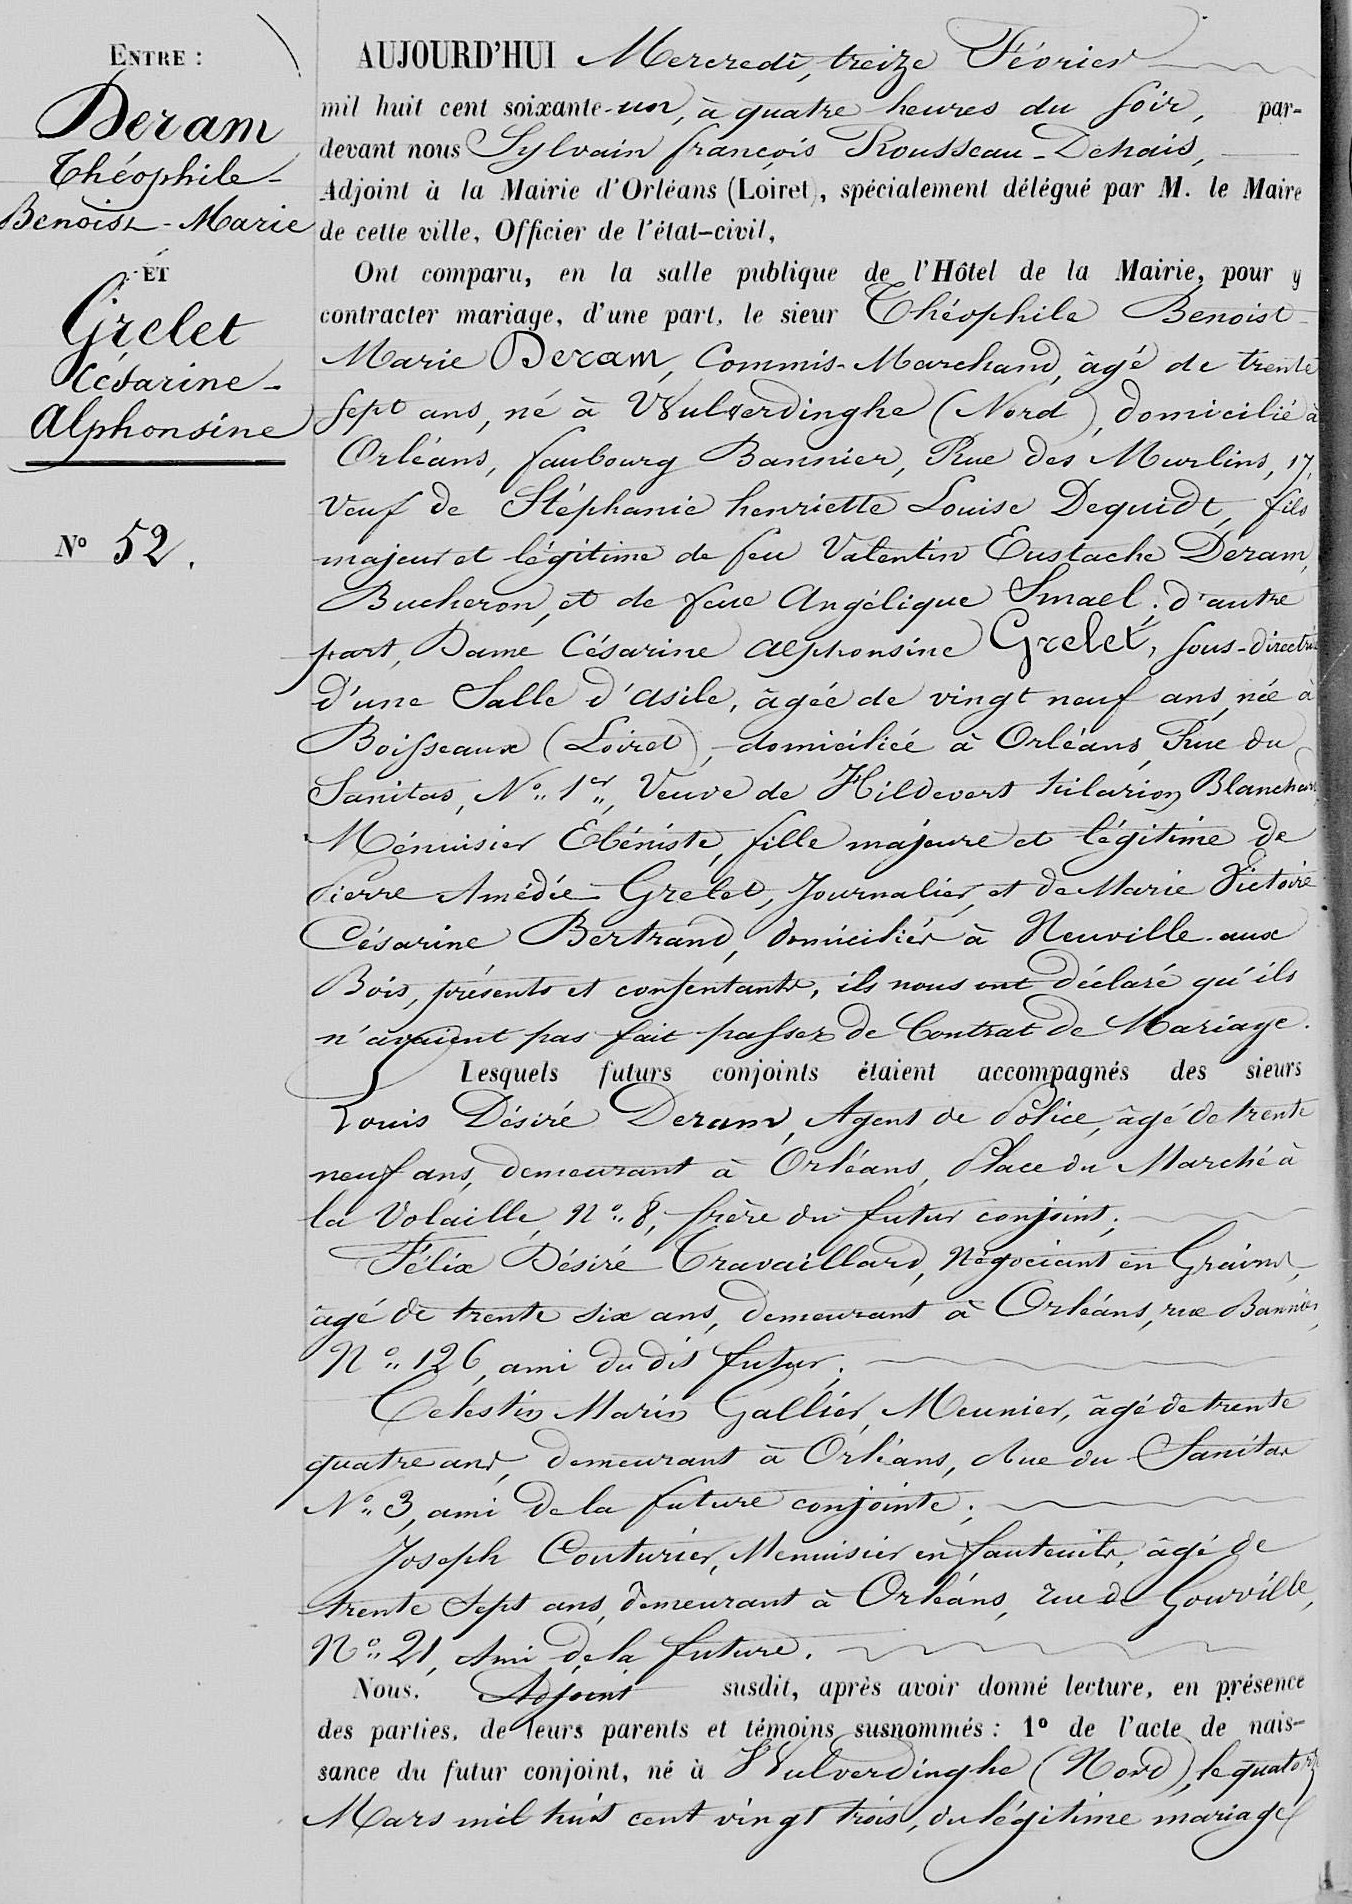 ENTRE :
Deram
Théophile-
Benoist-Marie
ET
Grelet
Césarine-
Alphonsine
No 52.
AUJOURD'HUI Mercredi, treize Février
mil huit cent soixante-un, à quatre heures du soir, par-
devant nous Sylvain françois Rousseau-Dehais,
Adjoint à la Mairie d'Orléans (Loiret), spécialement délégué par M. le Maire
de cette ville, Officier de l'état-civil,
Ont comparu, en la salle publique de l'Hôtel de la Mairie, pour y
contracter mariage, d'une part, le sieur Théophile Benoist-
Marie Deram, Commis-Marchand, âgé de trente
sept ans, né à Wulverdinghe (Nord), domicilié à
Orléans, faubourg Bannier, Rue des Murlins, 17,
Veuf de Stéphanie henriette Louise Dequidt, fils
majeur et légitime de feu Valentin Eustache Deram,
Bucheron, et de feue Angélique Smael; d'autre
part, Dame Césarine Alphonsine Grelet, sous-directrice
d'une Salle d'asile, âgée de vingt neuf ans, née à
Boisseaux (Loiret), domiciliée à Orléans, Rue du
Sanitas, No 1er, Veuve de Hildevert hilarion Blanchard
Ménuisier Ebéniste, fille majeure et légitime de
Pierre Amédée Grelet, Journalier, et de Marie Victoire
Césarine Bertrand, domiciliés à Neuville-aux
Bois, présents et consentants, ils nous ont déclaré qu'ils
n'avaient pas fait passer de Contrat de Mariage.
Lesquels futurs conjoints étaient accompagnés des sieurs
Louis Désiré Deram, Agent de Police, âgé de trente
neuf ans, demeurant à Orléans, Place du Marché à
la Volaille, No 8, frère du futur conjoint;
Félix Désiré Travaillard, Négociant en Grains,
âgé de trente six ans, demeurant à Orléans, rue Bannier,
No 126, ami du dit futur;
Celestin Marin Gallier, Meunier, âgé de trente
quatre ans, demeurant à Orléans, Rue du Sanitas
No 3, ami de la future conjointe;
Joseph Couturier, Menuisier en fauteuils, âgé de
trente sept ans, demeurant à Orléans, rue de Gourville,
No 21, Ami de la future.
Nous, Adjoint susdit, après avoir donné lecture, en présence
des parties, de leurs parents et témoins susnommés : 1o de l'acte de nais-
sance du futur conjoint, né à Wulverdinghe (Nord), le quatorze
Mars mil huit cent vingt trois, du légitime mariage